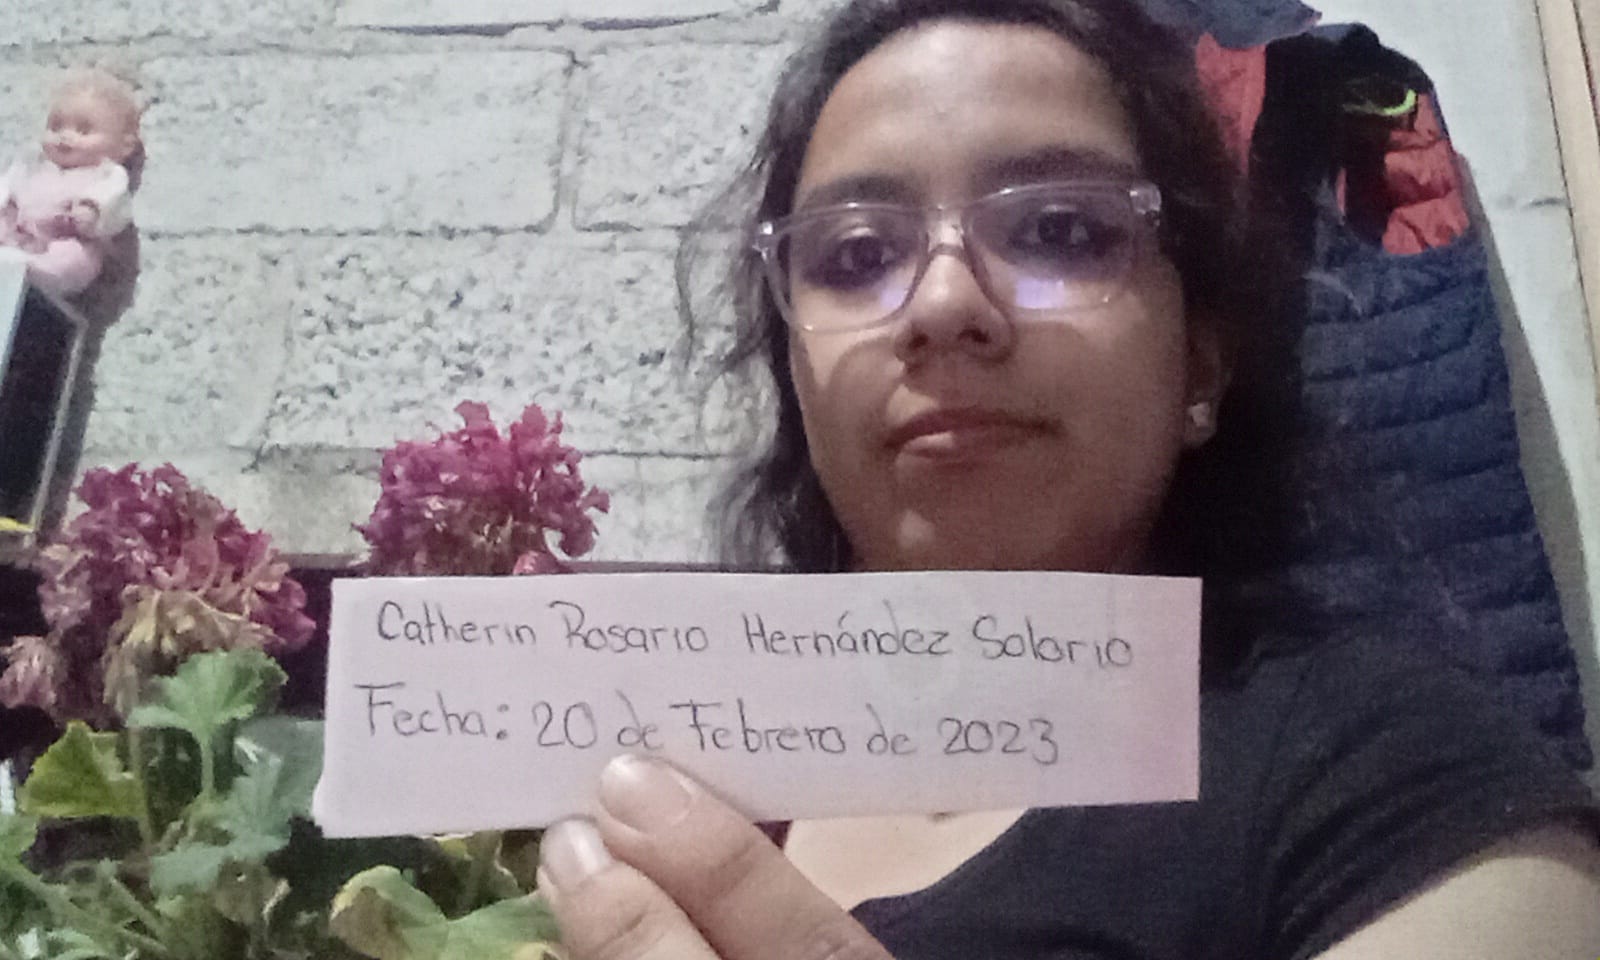 Catherin Rosario Hernández Solorio
Fecha: 20 de Febrero de 2023